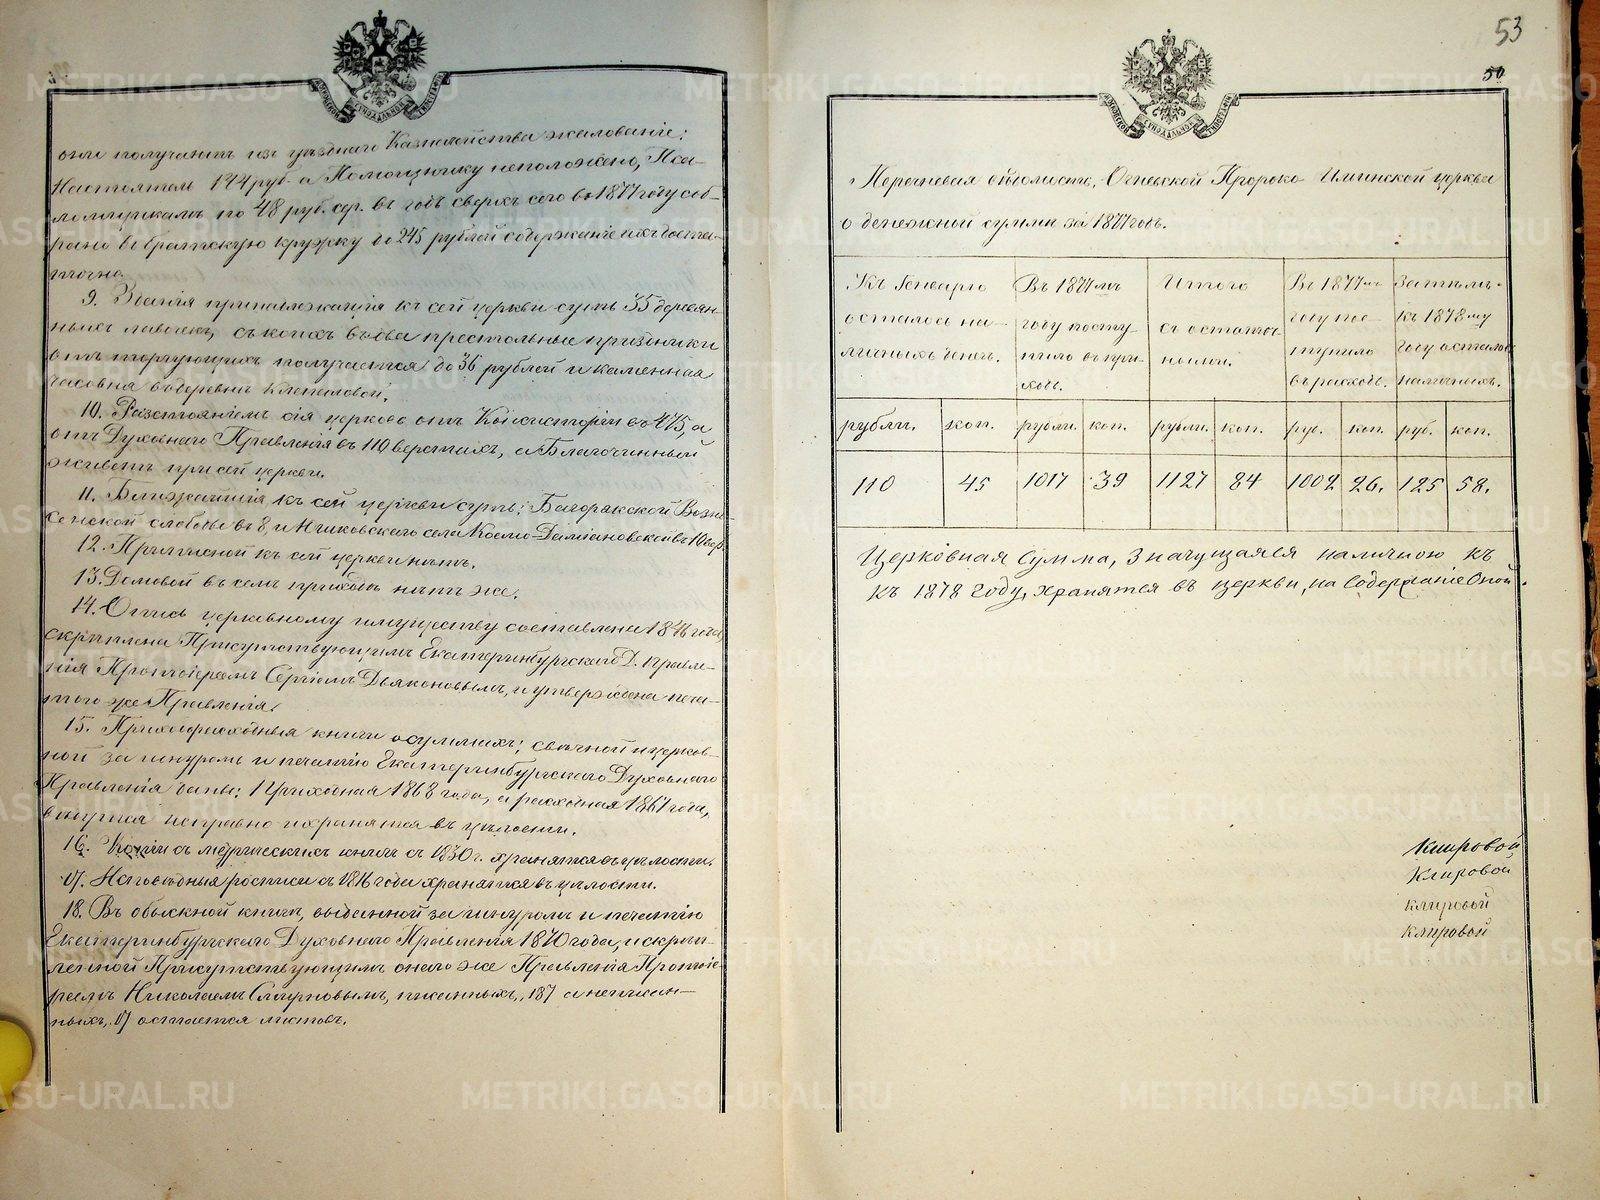 они получаютъ изъ уѣзднаго Казначейства жалованіе:
Настоятель 144 руб. а Помощнику неположено, Пса-
ломщикамъ по 48 руб. сер. въ годъ сверхъ сего въ 1877 году соб-
рано въ братскую кружку до 245 рублей содержаніе ихъ доста-
точно.
9. Зданія принадлежащія къ сей церкви суть 35 деревян-
ныхъ лавочекъ, съ коихъ въ два престольные праздники
отъ торгующихъ получается до 36 рублей и каменная
часовня въ деревнѣ Клепаловой.
10. Разстояніемъ сія церковь отъ Консисторіи въ 475, а
отъ Духовнаго Правленія въ 110 верстахъ, а Благочинный
живетъ при сей церкви.
11. Ближайшія къ сей церкви суть: Багорякской Возне-
сенской слободы въ 8, и Ичиковскаго села Космо-Даміановской въ 10 вер.
12. Приписной къ сей церкви нѣтъ.
13. Домовой въ семъ приходѣ нѣтъ же.
14. Опись церковному имуществу составлена 1846 года,
скрѣплена Присутствующимъ Екатеринбургскаго Д. Правле-
нія Протоіереемъ Сергіемъ Дьяконовымъ, и утверждена печа-
тью того же Правленія.
15. Приходорасходныя книги о суммахъ: свѣчной и церков-
ной за шнуромъ и печатію Екатеринбургскаго Духовнаго
Правленія даны: Приходная 1868 года, а расходная 1867 года,
ведутся исправно и хранятся въ цѣлости.
16. Копіи съ метрическихъ книгъ съ 1830 г. хранятся въ цѣлости.
17. Исповѣдныя росписи съ 1816 года хранятся въ цѣлости.
18. Въ обыскной книгѣ, выданной за шнуромъ и печатію
Екатеринбургскаго Духовнаго Правленія 1870 года, и скрѣп-
ленной Присутствующимъ онаго же Правленія Протоіе-
реемъ Николаемъ Смирновымъ, писанныхъ, 187 а неписан-
ныхъ, 17 остается листовъ.
53
50
Перечневая вѣдомость, Огневской Пророко-Илiинской церкви
о денежной суммѣ за 1877 годъ.
Къ Генварю осталось наличныхъ денегъ.
Въ 1877 мъ году поступило въ приходъ.
Итого съ остаточными.
Въ 1877 мъ году поступило въ расходъ.
Затѣмъ къ 1878 му году осталось наличныхъ.
рубли. коп. рубли. коп. рубли. коп. руб. коп. руб. коп.
110 45 1017 39 1127 84 1002 26. 125 58.
Церковная сумма, значущаяся наличною къ
къ 1878 году, хранятся въ церкви, на содержаніе оной.
Клировой
Клировой
Клировой
Клировой
METRIKI.GASO-URAL.RU